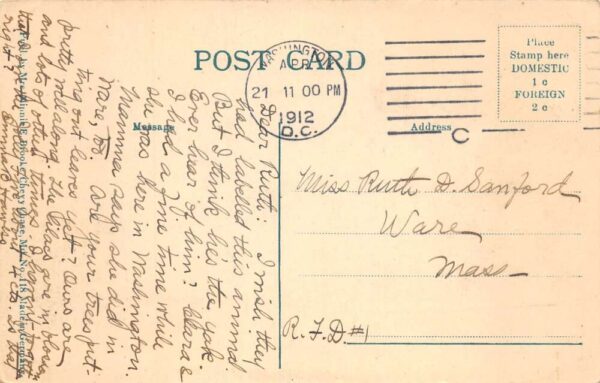 POST CARD
WASHINGTON
APR
21 11 00 PM
1912
D.C.
Place
Stamp here
DOMESTIC
1 c
FOREIGN
2 c
C
Message
Address
Dear Ruth: I wish they
had labelled this animal.
But I think he's the yak.
Ever hear of him? Clara &
I had a fine time while
she was here in Washington.
Mamma says she did in
Ware, too. Are your trees put-
ting out leaves yet? Ours are
pretty well along. The lilacs are in bloom
and lots of other things. I haven't
right?
Miss Ruth D. Sanford
Ware
Mass
R.F.D #1